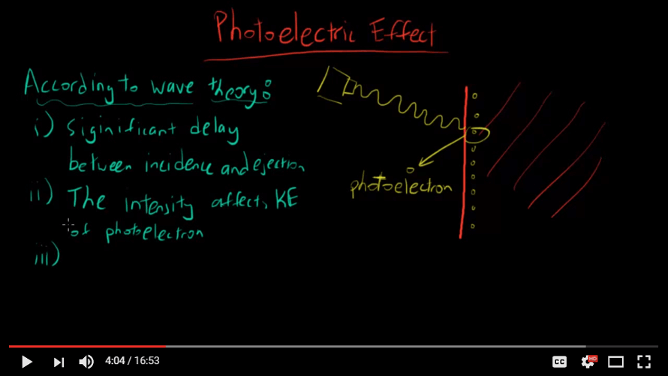 Photoelectric Effect
According to wave theory:
i) Siginificant delay
between incidence and ejection
ii) The intensity affects KE
of photoelectron
iii)
photoelectron
4:04 / 16:53
CC
HD